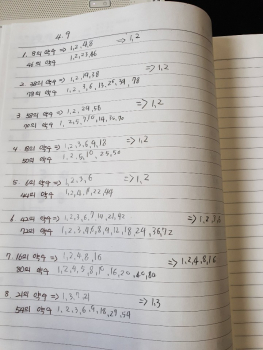 4.9
1. 8의 약수 => 1,2,4,8 => 1,2
46의 약수 1,2,23,46
2. 38의 약수 => 1,2,19,38 => 1,2
78의 약수 1,2,3,6,13,26,39,78
3. 58의 약수 => 1,2,29,58 => 1,2
70의 약수 1,2,5,7,10,14,35,70
4. 18의 약수 => 1,2,3,6,9,18 => 1,2
50의 약수 1,2,5,10,25,50
5. 6의 약수 => 1,2,3,6 => 1,2
44의 약수 1,2,4,11,22,44
6. 42의 약수 => 1,2,3,6,7,14,21,42 => 1,2,3,6
72의 약수 1,2,3,4,6,8,9,12,18,24,36,72
7. 16의 약수 => 1,2,4,8,16 => 1,2,4,8,16
80의 약수 1,2,4,5,8,10,16,20,40,80
8. 21의 약수 => 1,3,7,21 => 1,3
54의 약수 1,2,3,6,9,18,27,54